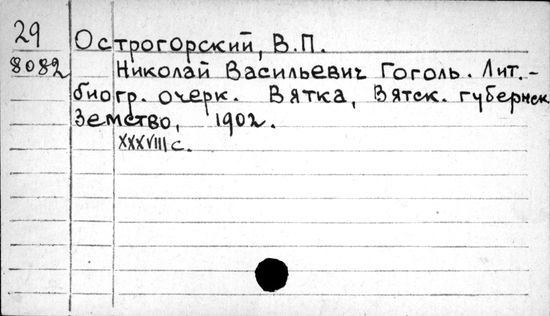 29 Острогорский, В.П.
8082 Николай Васильевич Гоголь. Лит.-
биогр. очерк. Вятка, Вятск. губернск
Земство, 1902.
XXXVIII с.